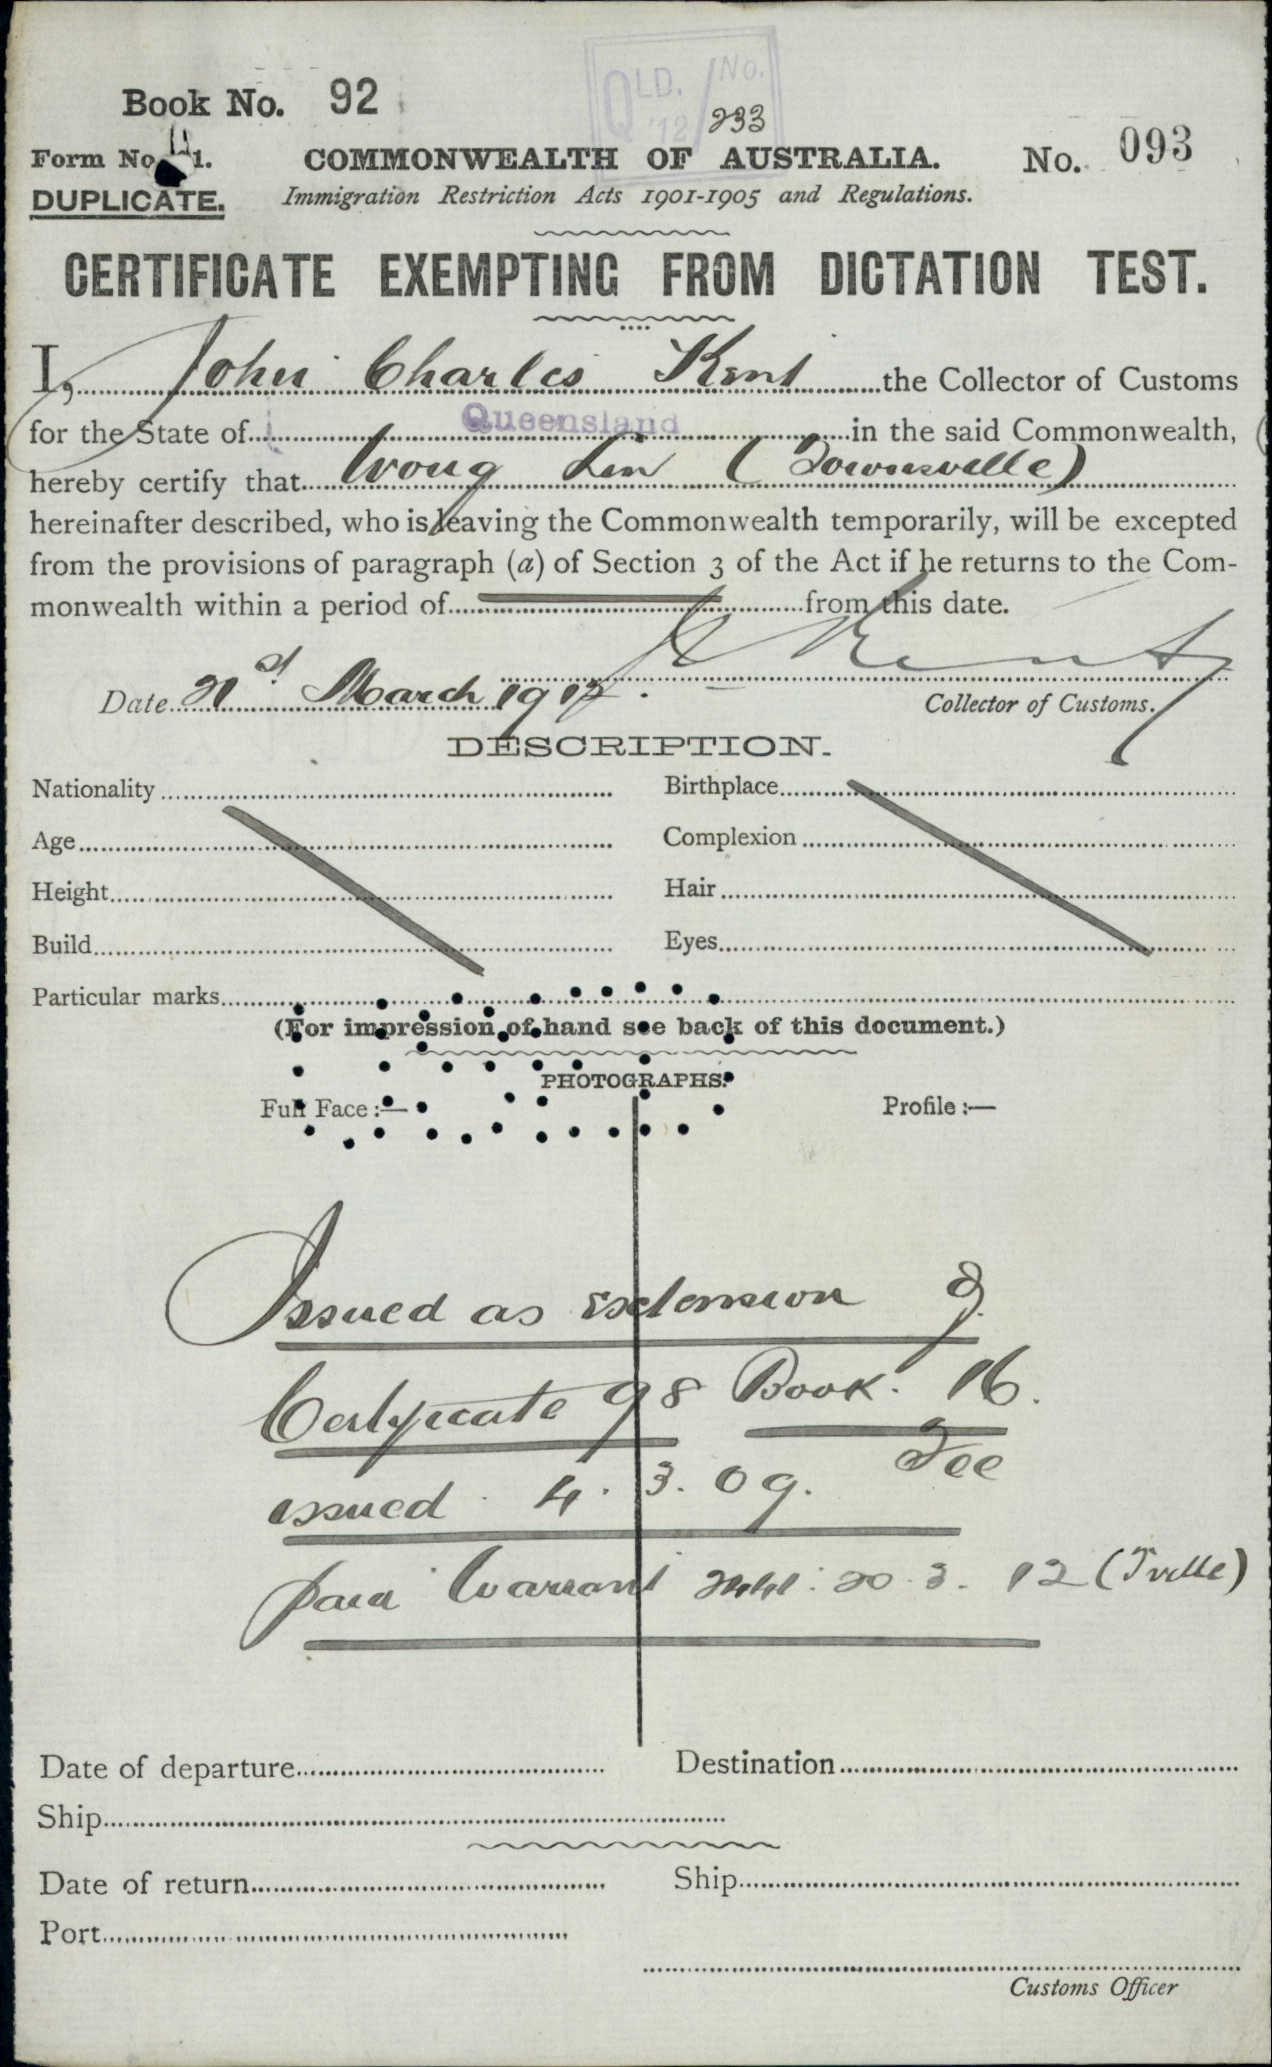 QLD. No.
Book No. 92
'12 233
Form No. 21. COMMONWEALTH OF AUSTRALIA. No. 093
DUPLICATE. Immigration Restriction Acts 1901-1905 and Regulations.
CERTIFICATE EXEMPTING FROM DICTATION TEST.
I, John Charles Kent the Collector of Customs
for the State of Queensland in the said Commonwealth,
hereby certify that Wong Lin (Townsville)
hereinafter described, who is leaving the Commonwealth temporarily, will be excepted
from the provisions of paragraph (a) of Section 3 of the Act if he returns to the Com-
monwealth within a period of from this date.
Kent
Date 21st March 1912. Collector of Customs.
DESCRIPTION.
Nationality Birthplace
Age Complexion
Height Hair
Build Eyes
Particular marks
(For impression of hand see back of this document.)
PHOTOGRAPHS.
Full Face:— Profile:—
Issued as extension of
Certificate 98 Book. 16.
issued. 4.3.09. Fee
paid Warrant 20.3.12 (Tville)
Date of departure Destination
Ship
Date of return Ship
Port
Customs Officer